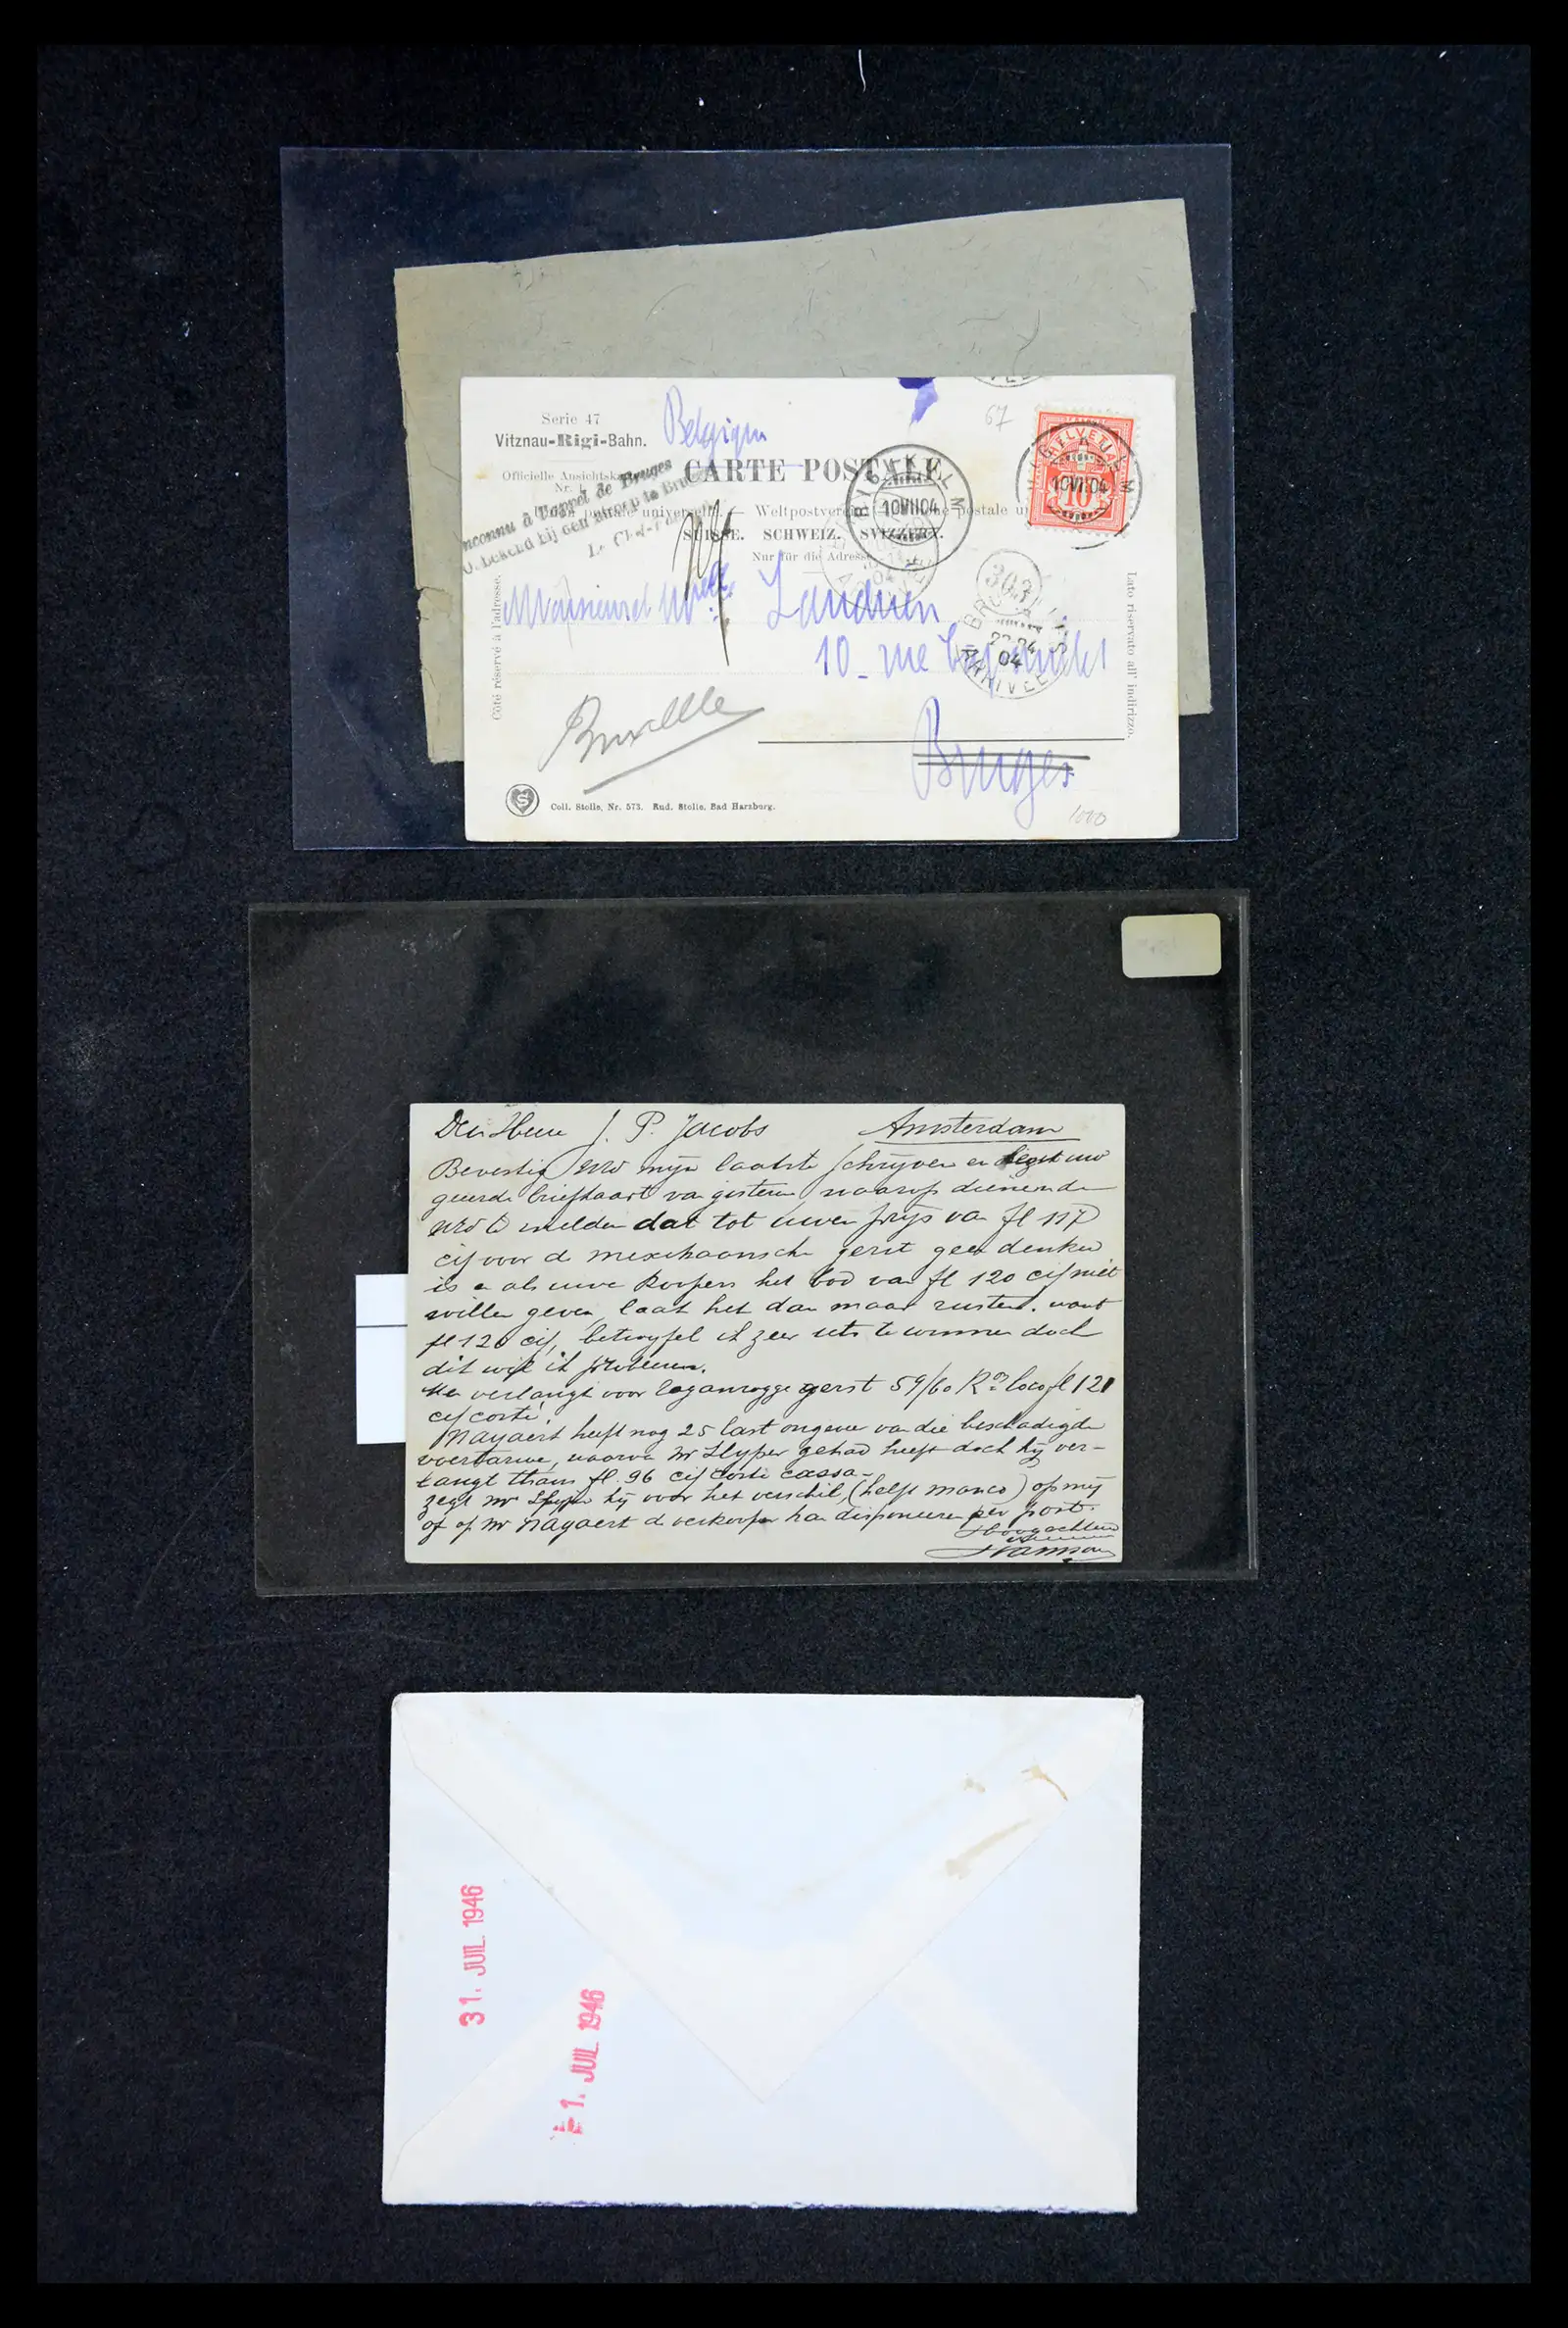 Serie 47
Vitznau-Rigi-Bahn.
Belgique
CARTE POSTALE
Officielle Ansichtska
Nr.
nconnu à l'appel de Bruges
bekend bij den
postale universelle. — Weltpostverein postale un
SUISSE. SCHWEIZ. SVIZZERA.
Nur für die Adresse
RIGI KULM
10 VII 04
HELVETIA
10
10 VII 04
67
303
04
ARRIVEE
Côté réservé à l'adresse.
Lato riservato all' indirizzo.
Monsieur et Mme
10 - rue
Bruxelle
Bruges
Coll. Stolle, Nr. 573. Rud. Stolle, Bad Harzburg.
1000
Den Heer J. P. Jacobs Amsterdam
Bevestig UEd mijn laatste schrijven en uw
geëerde briefkaart van gisteren, waarop dienende
UEd te melden dat tot uwen prijs van fl 117
cif voor de mexikaansche gerst geen denken
is en als uwe koopers het bod van fl 120 cif niet
willen geven, laat het dan maar rusten. want
fl 120 cif, betwyfel ik zeer iets te winnen doch
dit wil ik proberen.
Men verlangt voor gerst 59/60 Ko loco fl 121
cif corté.
Nayaert heeft nog 25 last ongeveer van die beschadigde
voertarwe, waarvan Mr Slyper gehad heeft doch hij ver-
langt thans fl. 96 cif corté cassa -
zegt Mr Slyper hij voor het verschil, (helft manco) op mij
of op Mr Nayaert de verkooper kan disponeeren per post.
Hoogachtend
31. JUIL 1946
1. JUIL 1946